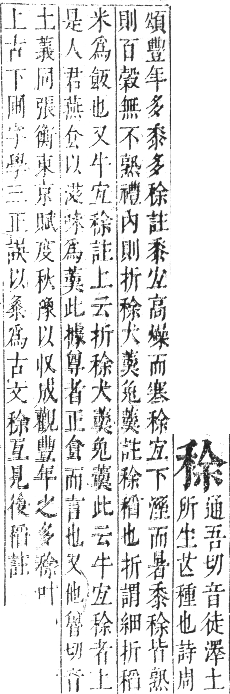 稌通吾切音徒澤土
所生芒種也詩周
頌豐年多黍多稌註黍宐高燥而寒稌宐下溼而暑黍稌皆熟
則百穀無不熟禮內則折稌犬羹兔羹註稌稻也折謂細折稻
米爲飯也又牛宐稌註上云折稌犬羹兔羹此云牛宐稌者上
是人君燕食以滋味爲羹此據尊者正食而言也又他魯切音
土義同張衡東京賦度秋豫以收成觀豐年之多稌叶
上古下圃字學三正誤以爲古文稌互見後稻註